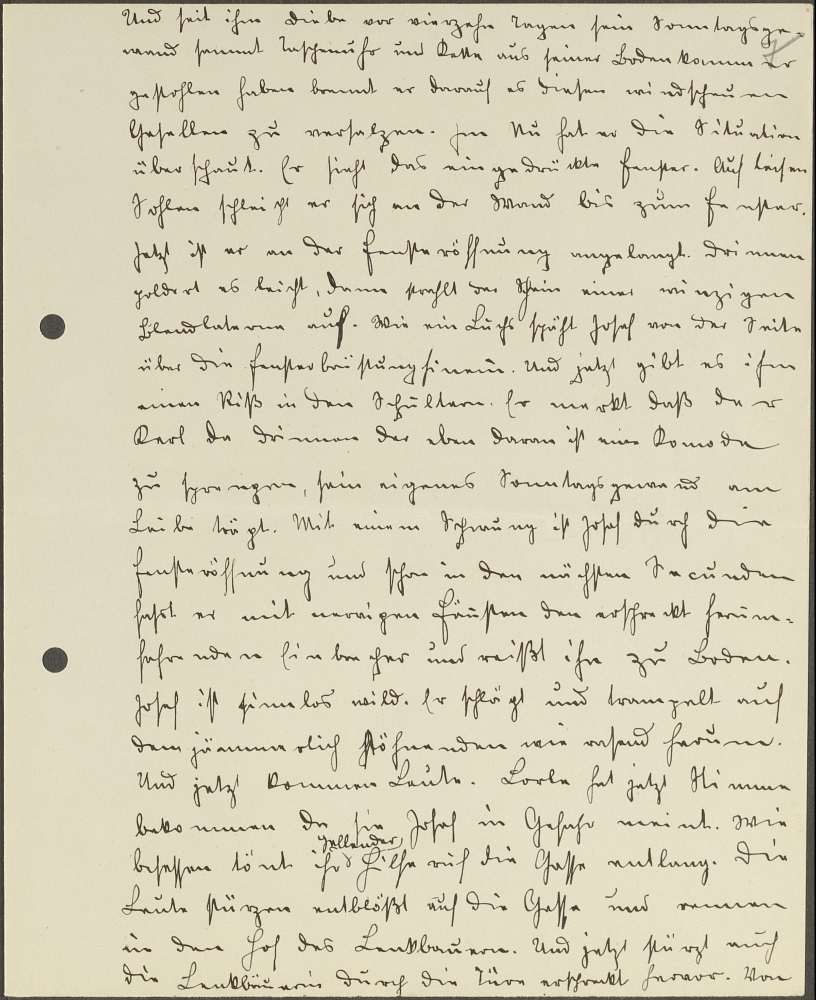 Und seit ihm Diebe vor vierzehn Tagen sein Sonntagsge-
wand sammt Taschenuhr und Kette aus seiner Bodenkammer
gestohlen haben brennt er darauf es diesen windscheuen
Gesellen zu versalzen. Im Nu hat er die Situation
überschaut. Er sieht das eingedrückte Fenster. Auf leisen
Sohlen schleicht er sich an der Wand bis zum Fenster.
Jetzt ist er an der Fensteröffnung angelangt. Drinnen
poldert es leicht, dann strahlt der Schein einer winzigen
Blendlaterne auf. Wie ein Luchs späht Josef von der Seite
über die Fensterbrüstung hinein. Und jetzt gibt es ihm
einen Riß in den Schultern. Er merkt daß der
Kerl da drinnen der eben daran ist eine Komode
zu sprengen, sein eigenes Sonntagsgewand am
Leibe trägt. Mit einem Schwung ist Josef durch die
Fensteröffnung und schon in den nächsten Secunden
faßt er mit nervigen Fäusten den erschreckt herum-
fahrenden Einbrecher und reißt ihn zu Boden.
Josef ist sinnlos wild. Er schlägt und trampelt auf
dem jämmerlich stöhnenden wie rasend herum.
Und jetzt kommen Leute. Lorle hat jetzt Stimme
bekommen da sie Josef in Gefahr meint. Wie
gellender
besessen tönt ihr Hilferuf die Gasse entlang. Die
Leute stürzen entblößt auf die Gasse und rennen
in den Hof des Lenkbauern. Und jetzt stürzt auch
die Lenkbäuerin durch die Türe erschreckt hervor. Von